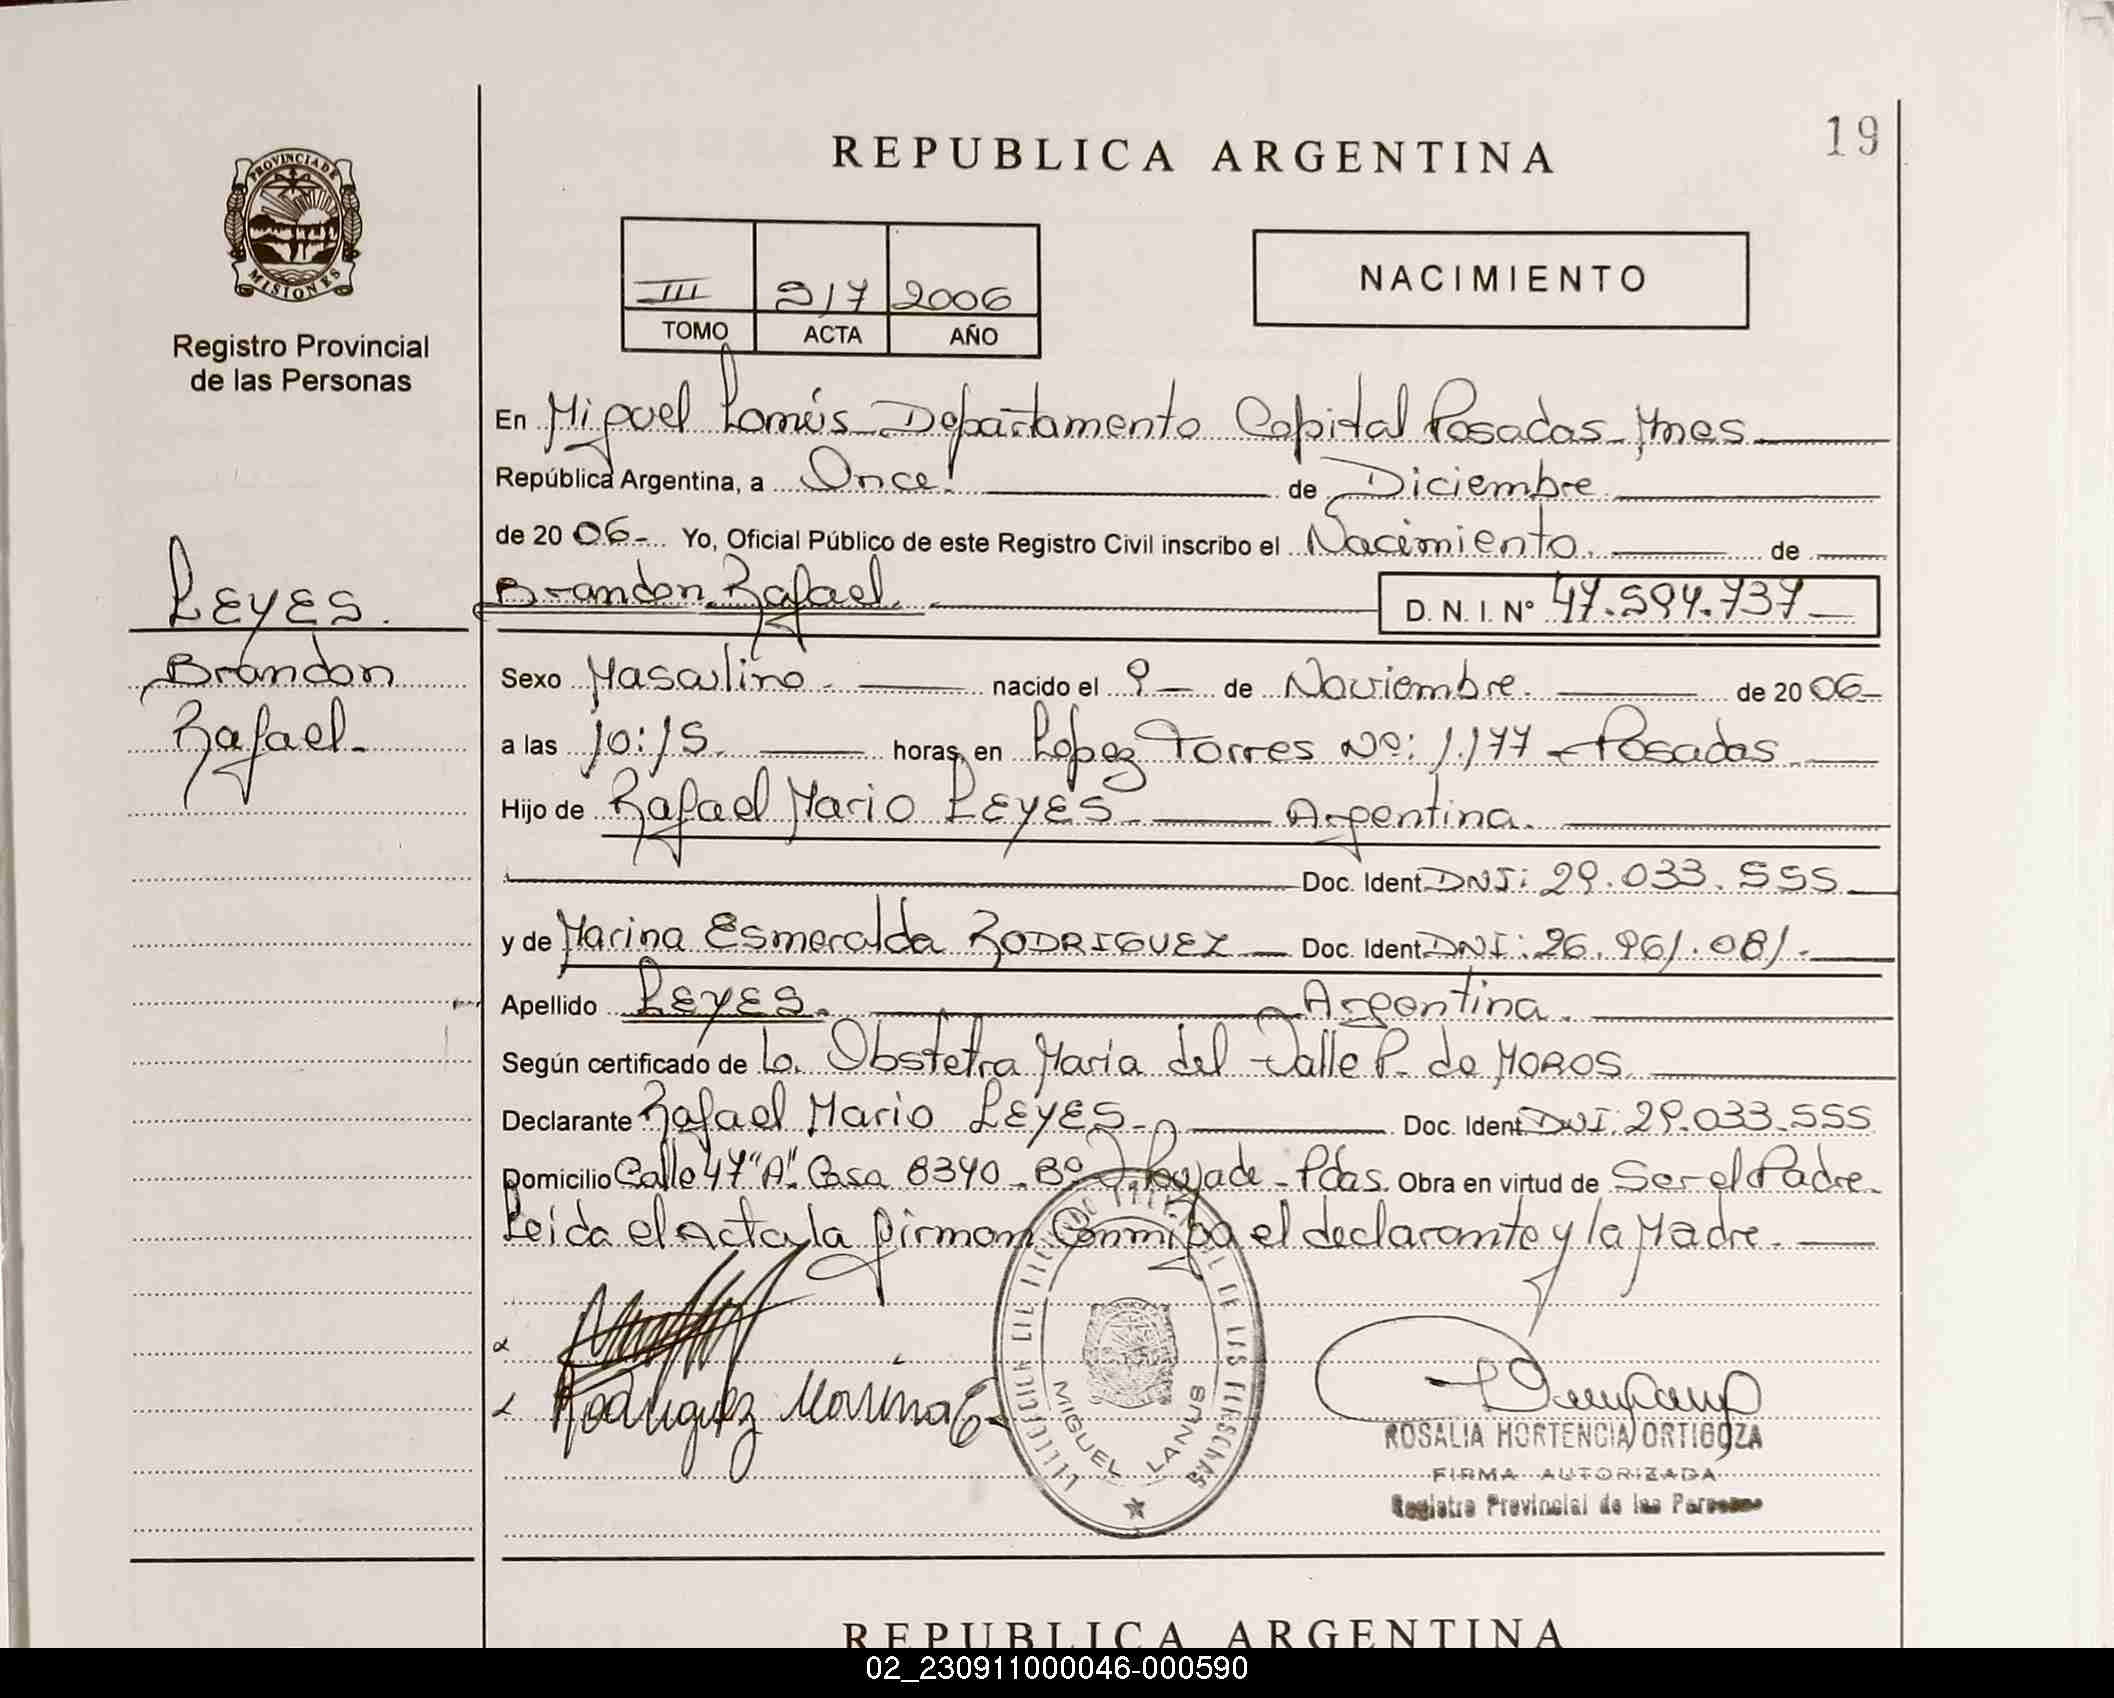 REPUBLICA ARGENTINA
19
PROVINCIA DE
MISIONES
Registro Provincial
de las Personas
III 217 2006
TOMO ACTA AÑO
NACIMIENTO
En Miguel Lanús Departamento Capital Posadas Mnes
República Argentina, a Once de Diciembre
de 2006- Yo, Oficial Público de este Registro Civil inscribo el Nacimiento de
Brandon Rafael D. N. I. Nº 47.594.737
LEYES.
Brandon
Rafael-
Sexo Masculino nacido el 9 de Noviembre de 2006-
a las 10:15 horas en López Torres Nº: 1.177 - Posadas
Hijo de Rafael Mario LEYES Argentina.
Doc. Ident DNI: 29.033.555
y de Marina Esmeralda RODRIGUEZ Doc. Ident DNI: 26.961.081
Apellido LEYES. Argentina.
Según certificado de la Obstetra María del Valle P. de MOROS
Declarante Rafael Mario LEYES Doc. Ident DNI: 29.033.555
Domicilio Calle 47 "A" Casa 8340 - Bº - Pdas. Obra en virtud de Ser el Padre
Leida el Acta, la firman Conmigo el declarante y la Madre.
Rodriguez Marina E
MIGUEL LANUS
ROSALIA HORTENCIA ORTIGOZA
FIRMA AUTORIZADA
Registro Provincial de las Personas
REPUBLICA ARGENTINA
02_230911000046-000590